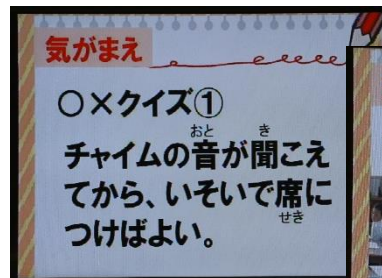 気がまえ
○×クイズ①
チャイムの音が聞こえ
てから、いそいで席に
つけばよい。